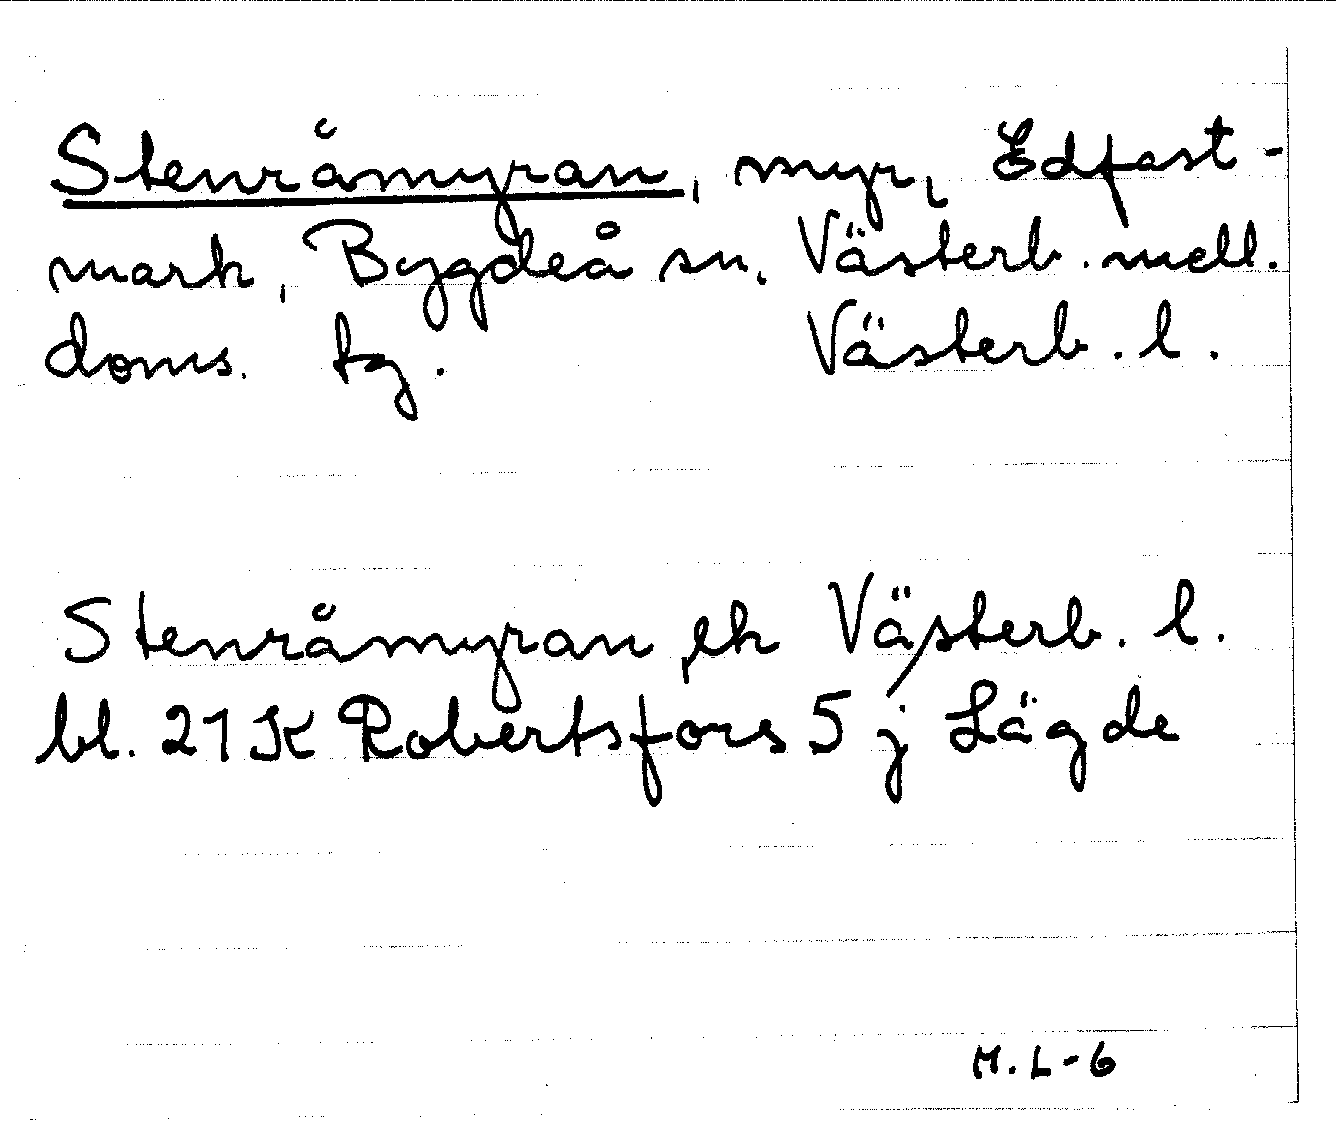 Stenråmyran, myr, Edfast-
mark, Bygdeå sn, Västerb. mell.
doms. tg. Västerb. l.
Stenråmyran, ek Västerb. l.
bl. 21K Robertsfors 5 j Lägde
M.L-6